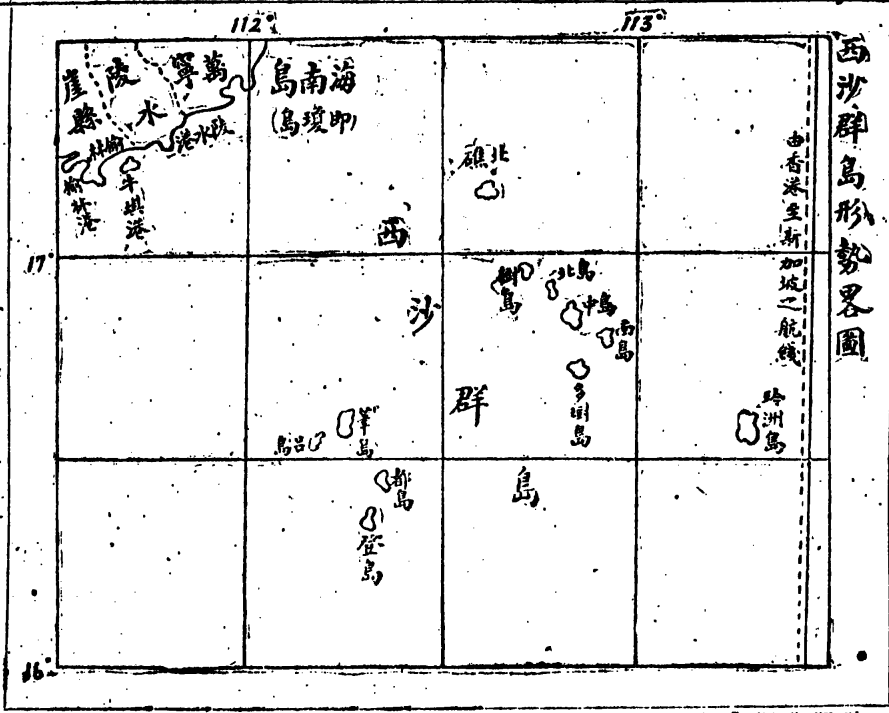 西沙群島形勢畧圖
112°
113°
17°
16°
海南島
(即瓊島)
萬寧
陵水
崖縣
陵水港
榆林
榆林港
牛塭港
北礁
西沙群島
樹島
北島
中島
南島
多樹島
玲洲島
由香港至新加坡之航綫
筆島
呂島
都島
登島